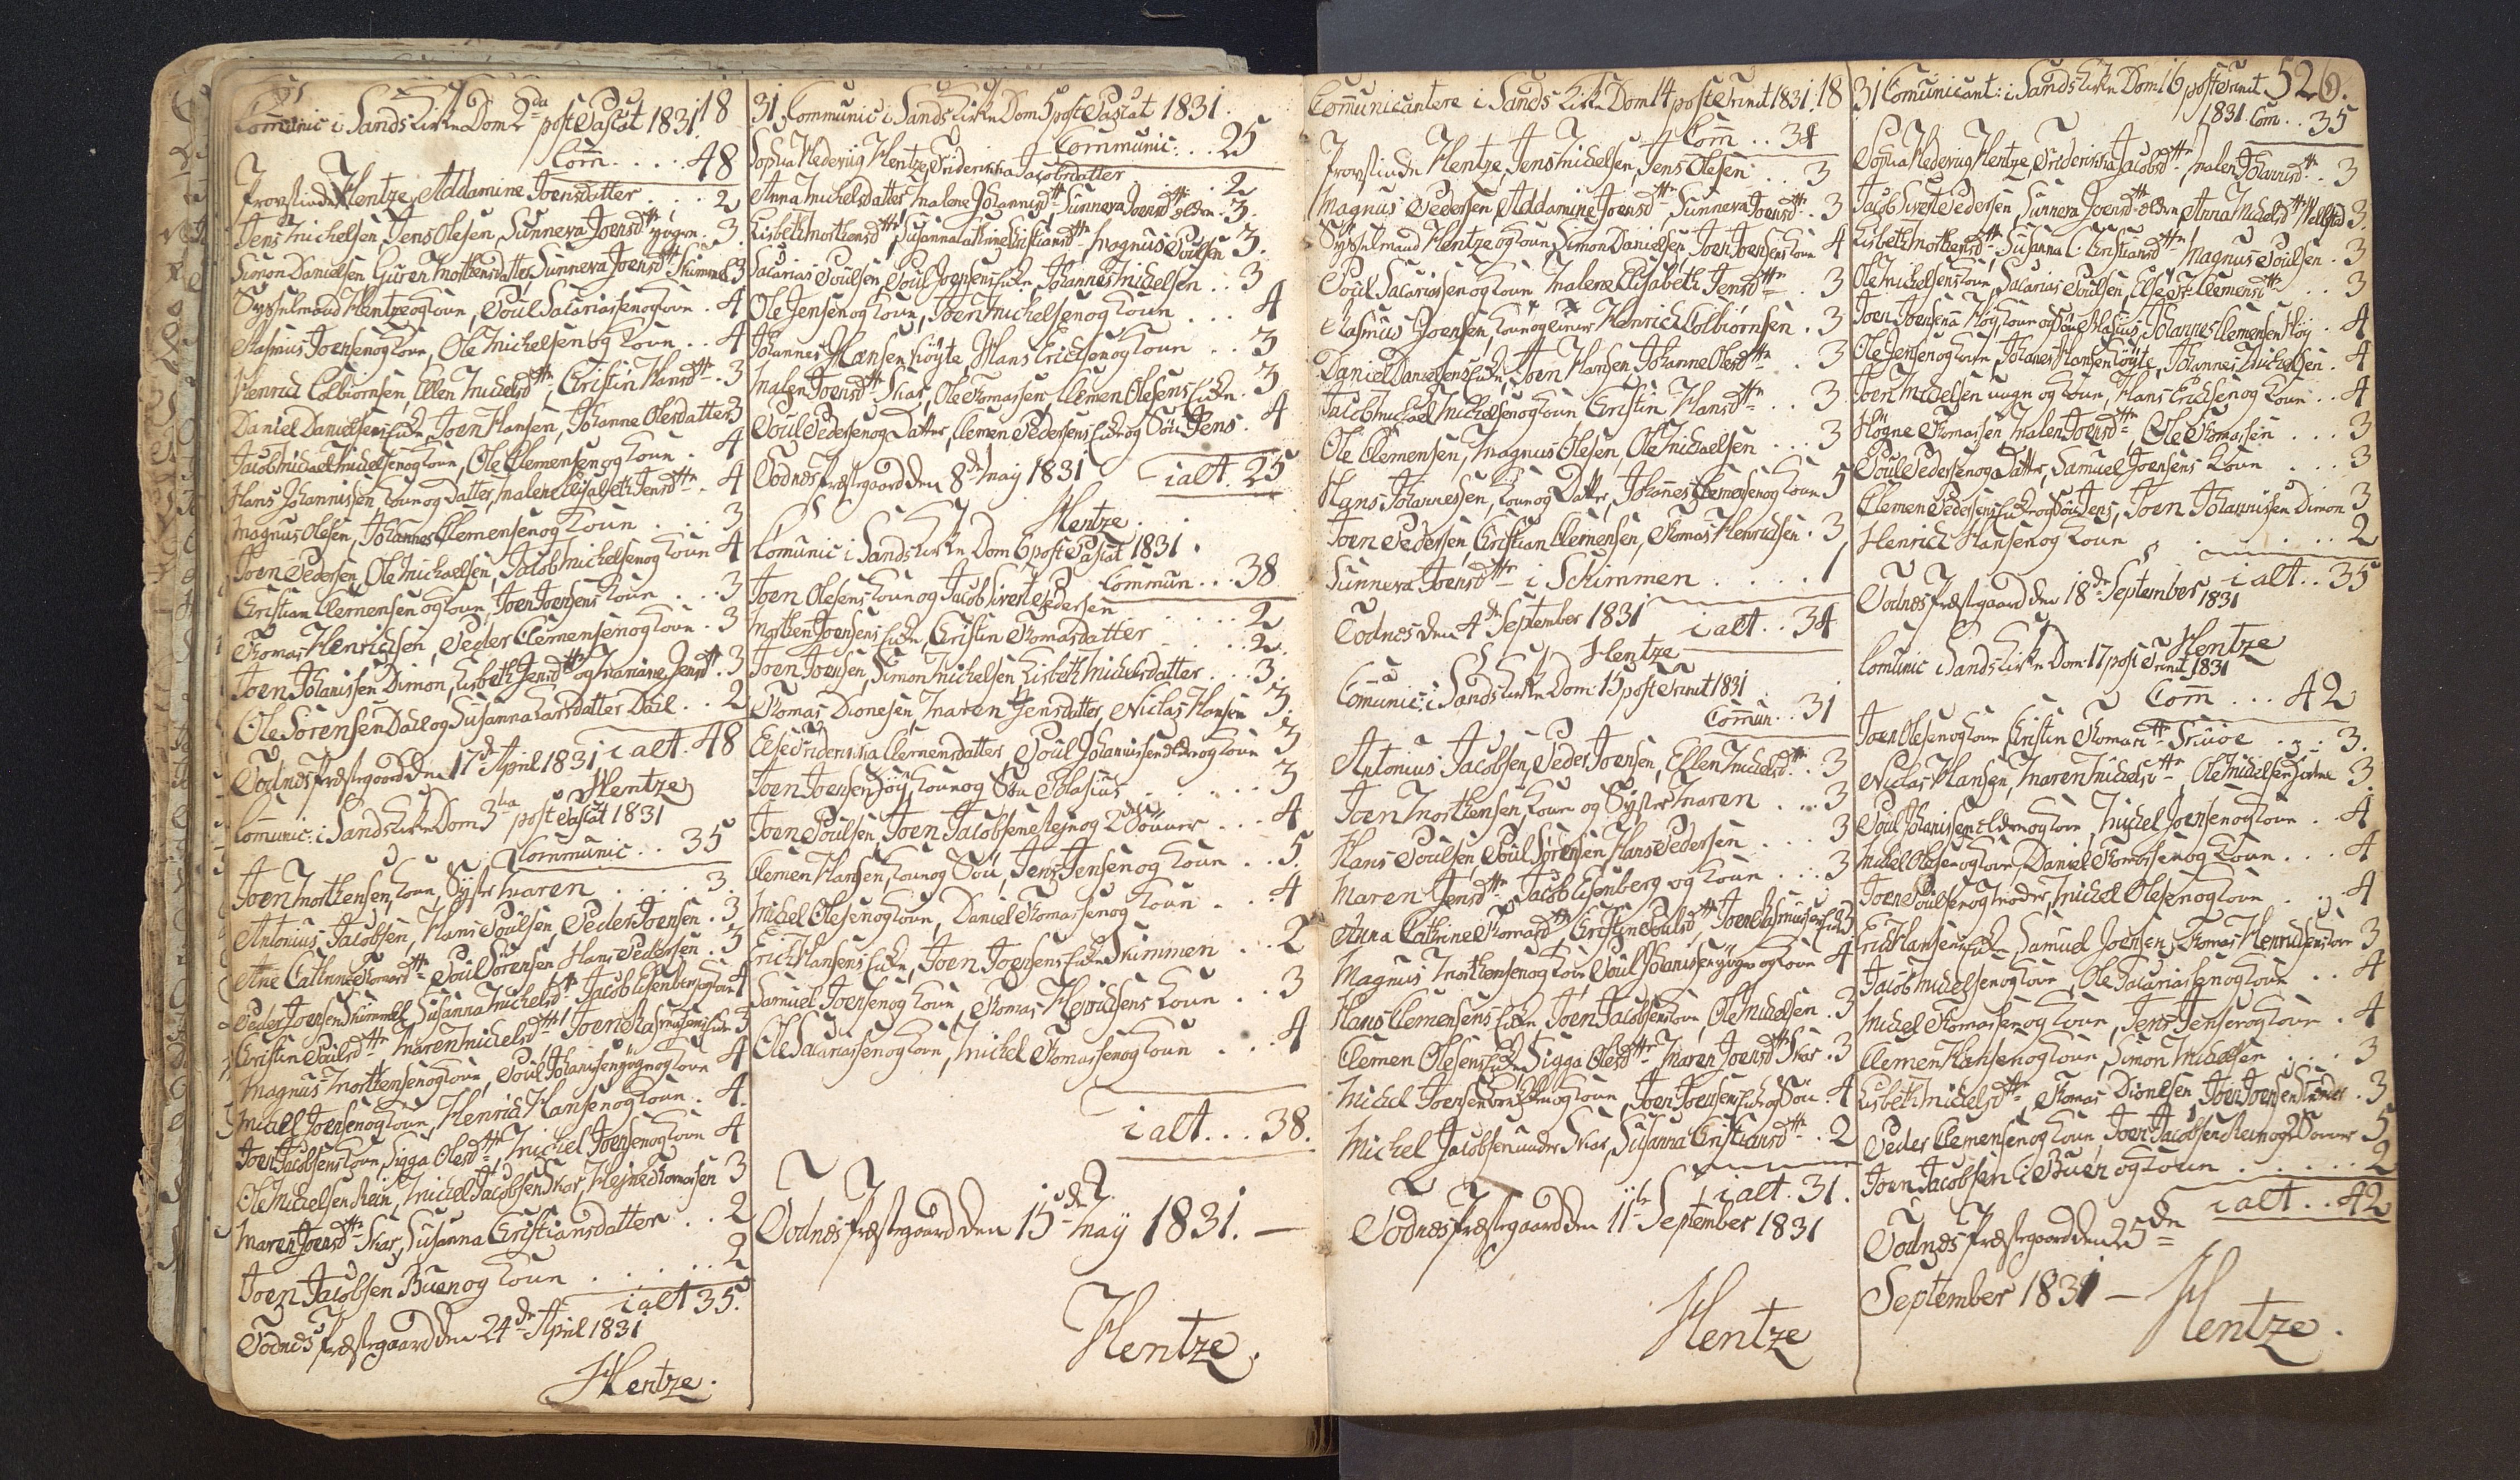 Communic i Sands Kirke Dom 2da post Pascat 1831. 18
Com̃ . . . . 48
Provstinde Hentze, Addamine Joensdatter . . . 2
Jens Michelsen, Jens Olesen, Sunneva Joensdttr yngre . 3
Simon Danielsen Guren Mortensdatter, Sunneva Joensdttr Skimmel 3
Sysselmand Hentze og Kone, Poul Sacariassen og Kone . 4
Rasmus Joensen og Kone, Ole Michelsen og Kone . . 4
Henrich Colbiörnsen, Ellen Michelsdttr, Christin Hansdttr . 3
Daniel Danielsens Enke, Joen Hansen, Johanne Olesdatter 3
Jacob Michael Michelsen og Kone, Ole Clemensen og Kone . 4
Hans Johannissen, Kone og Datter, Malene Elisabeth Jensdttr . 4
Magnus Olesen, Johannes Clemensen og Kone . . . 3
Joen Pedersen, Ole Michaelsen, Jacob Michelsen og Kone 4
Christian Clemensen og Kone, Joen Joensens Kone . . . 3
Thomas Henrichsen, Peder Clemensen og Kone . 3
Joen Johanissen Dimon, Lisbeth Jensdttr og Mariane Jensd . 3
Ole Sörensen Dall og Susanna Larsdatter Dall . . 2
i alt . 48
Todnes Præstegaard den 17de April 1831
Hentze
Com̃unic: i Sands Kirke Dom 3tia post Pascat 1831
Communic . . 35
Joen Mortensen, Kone, Syster Maren . . . . 3.
Antonius Jacobsen, Hans Poulsen, Peder Joensen . 3
Ane Cathrine Thomasdttr Poul Sörensen Hans Pedersen . 3
Peder Joensen Skimmel Susanna Michelsdttr Jacob Eisenberg og Kone 4
Christin Poulsdttr, Maren Michelsdttr, Joen Rasmussens Enke 3
Magnus Mortensen og Kone, Poul Johanissen yngre og Kone 4
Michel Joensen og Kone, Henrich Hansen og Kone . 4.
Joen Jacobsens Kone, Sigga Olesdttr, Michel Joensen og Kone 4
Ole Michelsen Rein, Michel Jacobsen Skar, Hejne Thomassen 3
Maren Joensdttr Skar, Susanna Christiansdatter . . 2
Joen Jacobsen Buen og Kone . . . . . 2
i alt 35.
Todnes Præstegaard den 24de April 1831
Hentze.
31 Communic i Sands Kirke Dom 5 post Pascat 1831.
Communic: . . 25
Sophia Hedevig Hentze, Friderikka Jacobsdatter . . 2
Anna Michelsdatter, Malene Johannisdttr, Sunneva Joensdttr elder . 3.
Lisbeth Mortensdttr, Susanna Cathrine Christiansdttr, Magnus Poulsen 3.
Sacarias Poulsen, Poul Joensens Enke, Johannes Michelsen . . 3
Ole Jensen og Kone, Joen Michelsen og Kone . . . 4
Johannes Hansen Höyte, Hans Erichsen og Kone . . 3
Malen Joensdttr Skar, Ole Thomassen, Clemen Olesens Enke . 3
Poul Pedersen og Datter, Clemen Pedersens Enke og Sön Jens . 4
i alt . 25
Todnes Præstegaard den 8de May 1831
Hentze.
Com̃unic i Sands Kirke Dom 6 post Pascat 1831.
Commun . . . 38
Joen Olesens Kone og Jacob Sivert Pedersen . . . . 2
Morten Joensens Enke, Christin Thomasdatter . . 2.
Joen Joensen, Simon Michelsen, Lisbeth Michelsdatter . . . 3.
Thomas Dionesen, Maren Jensdatter, Niclas Hansen 3.
Else Friderikka Clemensdatter, Poul Johanissen elder og Kone 3
Joen Joensen Höy, Kone og Sön Blasius . . . . 3
Joen Poulsen, Joen Jacobsen Rejn og 2de Sönner . . . 4
Clemen Hansen, Kone og Sön, Jens Jensen og Kone . . 5.
Michel Olesen og Kone, Daniel Thomassen og Kone . . 4
Erich Hansens Enke, Joen Joensens Enke Skimmen . . . 2
Samuel Joensen og Kone, Thomas Henrichsens Kone . . 3
Ole Sacariassen og Kone, Michel Thomassen og Kone . . . 4
i alt . . . 38.
Todnes Præstegaard den 15de May 1831. —
Hentze.
Com̃unicantere i Sands Kirke Dom 14 post Trinit 1831. 18
Com̃ . . 34
Provstinde Hentze, Jens Michelsen, Jens Olesen . . . 3
Magnus Pedersen, Addamine Joensdttr Sunneva Joensdttr . 3
Sysselmand Hentze og Kone, Simon Danielsen, Joen Joensens Kone 4
Poul Sacariassen og Kone Malene Elisabeth Jensdttr . 3
Rasmus Joensen, Kone Henrich Colbiörnsen . 3
Daniel Danielsens Enke, Joen Hansen, Johanne Olesdttr . . 3
Jacob Michael Michelsen og Kone Christin Hansdttr . . . 3
Ole Clemensen, Magnus Olesen, Ole Michaelsen . . . 3
Hans Johannessen, Kone og Datter, Johannes Clemensen og Kone 5
Joen Pedersen, Christian Clemensen, Thomas Henrichsen . 3
Sunneva Joensdttr i Skimmen . . . . 1
i alt . . 34
Todnes den 4de September 1831
Hentze
Com̃unic: i Sands Kirke Dom: 15 post Trinit 1831
Com̃un: . 31
Antonius Jacobsen, Peder Joensen, Ellen Michelsdttr . 3
Joen Mortensen, Kone og Syster Maren . . . 3
Hans Poulsen, Poul Sörensen Hans Pedersen . . . 3
Maren Jensdttr Jacob Eisenberg og Kone . . . 3
Anna Cathrine Thomasdttr Christin Poulsdttr, Joen Rasmussens Enke 3
Magnus Mortensen og Kone Poul Johanissen yngre og Kone 4
Hans Clemensens Enke Joen Jacobsens Kone, Ole Michelsen . 3
Clemen Olesens Enke Sigga Olesdttr, Maren Joensdttr Skar . 3
Michel Joensen og Kone, Joen Joensens Enke og Sön . 4
Michel Jacobsen under Skar, Susanna Christiansdttr . . 2
i alt . 31.
Todnes Præstegaard den 11te September 1831
Hentze
31 Com̃unicant: i Sands Kirke Dom: 16 post Trinit 526.
1831. Com . . 35
Sophia Hedevig Hentze, Friderikka Jacobsdttr, Malen Johannisdttr . 3
Jacob Sivert Pedersen, Sunneva Joensdttr elder, Anna Michelsdttr 3.
Lisbeth Mortensdttr, Susanna C: Christiansdttr, Magnus Poulsen . 3
Ole Michelsens Kone, Sacarias Poulsen, Else Fr: Clemensdttr . . 3
Joen Joensen Höy, Kone og Sön Blasius, Johannes Clemensen Höy . 4
Ole Jensen og Kone, Johanes Hansen Höyte, Johannes Michelsen . 4
Joen Michelsen og Kone, Hans Erichsen og Kone . . 4
Högne Thomassen Malen Joensdttr, Ole Thomassen . . . 3
Poul Pedersen og Datter, Samuel Joensens Kone . . . 3
Clemen Pedersens Enke og Sön Jens, Joen Johannissen Dimon 3
Henrich Hansen og Kone . . . . . . 2
i alt . . 35
Todnes Præstegaard den 18de September 1831
Hentze
Com̃unic i Sands Kirke Dom: 17 post Trinit 1831
Com̃ . . . 42
Joen Olesen og Kone Christin Thomasdttr . . . 3.
Niclas Hansen, Maren Michelsdttr Ole Michelsens 3.
Poul Johanissen elder og Kone, Michel Joensen og Kone . 4
Michel Olesen og Kone, Daniel Thomassen og Kone . . . 4
Joen Poulsen og Moder, Michel Olesen og Kone . . 4
Erich Hansens Enke, Samuel Joensen, Thomas Henrichsens Kone 3
Jacob Michelsen og Kone, Ole Sacariassen og Kone . . 4
Michel Thomassen og Kone, Jens Jensen og Kone . 4
Clemen Hansen og Kone, Simon Michelsen . . . 3
Lisbeth Michelsdttr, Thomas Dionesen, Joen Joensen . 3
Peder Clemensen og Kone, Joen Jacobsen Rein og 2 Sönner 5
Joen Jacobsen i Buen og Kone . . . . . . 2
i alt . . 42
Todnes Præstegaard den 25de
September 1831 —
Hentze.